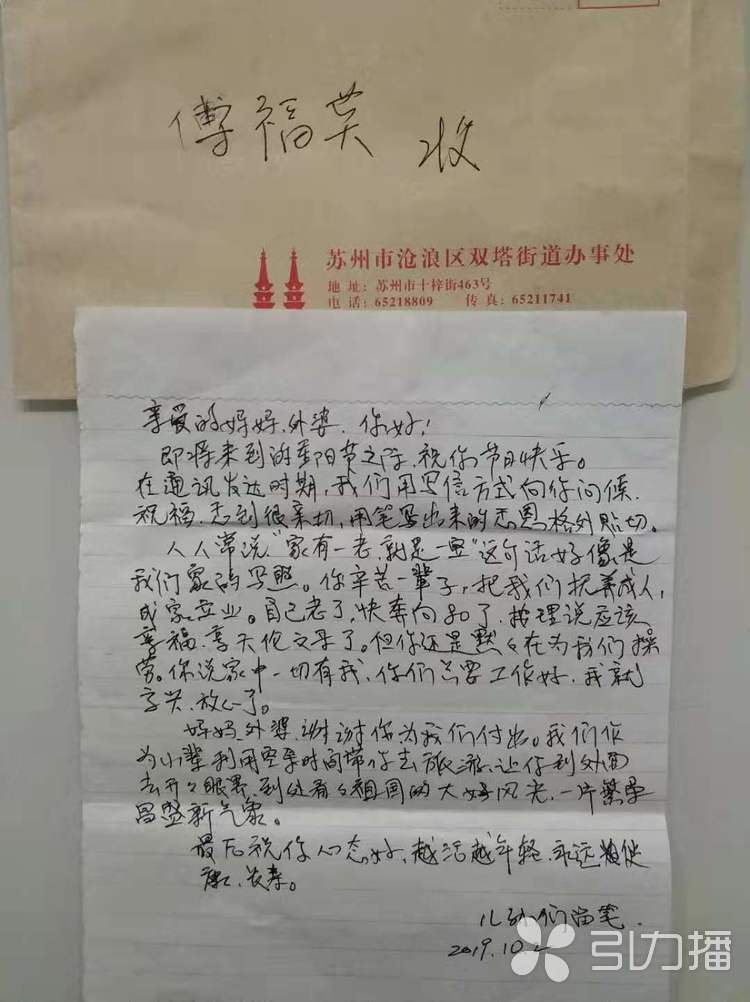 傅福英 收
苏州市沧浪区双塔街道办事处
地 址：苏州市十梓街463号
电 话：65218809 传 真：65211741
亲爱的妈妈、外婆、你好！
即将来到的重阳节之际，祝你节日快乐。
在通讯发达时期，我们用写信方式向你问候、
祝福，感到很亲切，用笔写出来的感恩格外贴切。
人人常说“家有一老就是一宝”这句话好像是
我们家的写照。你辛苦一辈子，把我们抚养成人，
成家立业。自己老了，快奔向80了，按理说应该
享福、享天伦之乐了。但你还是默々在为我们操
劳。你说家中一切有我，你们只要工作好，我就
放心了。
妈妈、外婆，谢谢你为我们付出。我们作
为小辈利用空余时间带你去旅游，让你到外面
去开々眼界，到处看々祖国的大好风光，一片繁荣
昌盛新气象。
最后祝你心态好，越活越年轻，永远
康、长寿。
儿孙们留笔.
2019.10.
引力播